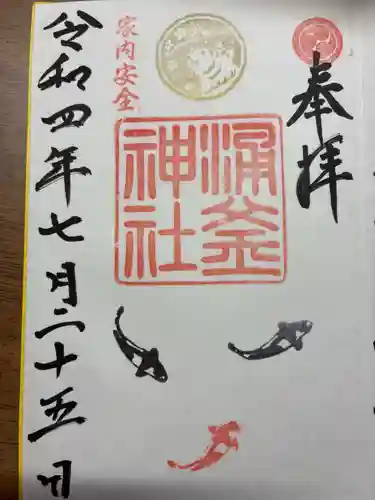 奉拝
涌釜
神社
家内安全
令和四年七月二十五日